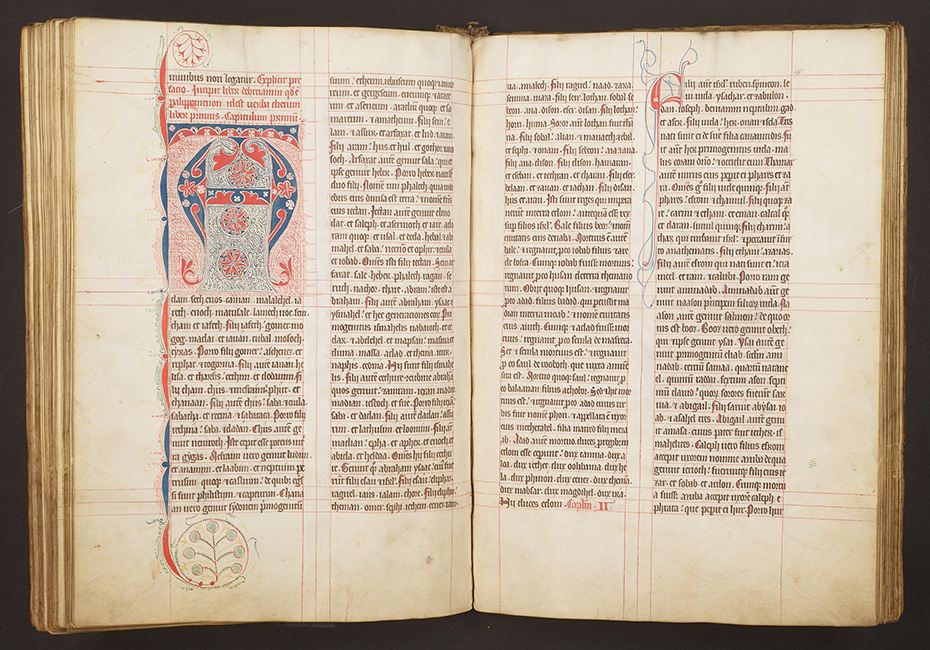 minibus non legatur. Explicit pre
facio. Incipit liber
palipomenon idest verba dierum
liber primus. Capitulum primū.
A
dam. seth. enos. cainan. malalehel. ia
reth. enoch. matusale. lamech. noe. sem
cham et iafeth. Filij iafeth. gomer. mo
gog. madai. et iauan. tubal. mosoch
tyras. Porro filij gomer.
riphat. et togorma. Filij autē iauan. he
lisa. et tharsis. cethim. et dodanim. Fi
lij cham. chus. mesraim. phut. et
chanaan. Filij autē chus. saba. euila.
sabatha. et regma. et sabataca. Porro filij
regma. saba. et dadan. Chus autē ge
nuit nemroth. Iste cepit esse potens in t̄
ra gygas. Mesraim vero genuit ludim
et anamim. et laabim. et neptuim. pe
trusim quoq;. et casluim. de quib; eg̃s
si sunt philistijm. et capturim. Chana
an vero genuit sydonem p̄mogenitū
suum. etheum. iebuseum quoq;. et amor
reum. et gergeseum. eueumq;. et arace
um. et aseneum. aradium quoq;. et sa
mareum. et amatheum. Filij sem. e
lam. et assur. et arfaxat. et lud. et aram.
Filij aram. hus. et hul. et gothor. et mo
soch. Arfaxat autē genuit sala. qui et
ipse genuit heber. Porro heber nati sūt
duo filij. Nomē uni phalech. quia in di
ebus eius diuisa est terra. et nomē fris
eius iectan. Iectan autē genuit elmo
dat. et saleph. et asermoth. et iare. ado
ram quoq;. et usal. et decla. hebal. et abi
mahel. et saba. necnō et ophir. et euila
et iobab. Om̄s isti filij iectan. Sem ar
faxat. sale. heber. phalech. ragau. se
ruch. nachor. thare. abram. iste est a
braham. Filij autē abraham. ysaac. et
ysmahel. et hee generationes eorū. Pri
mogenitus ismahelis nabaioth. et ce
dar. et abdehel. et mapsam. masma. et
duma. massa. adad. et thema. iecur.
naphis. cedma. Hij sunt filij ismahe
lis. Filij autē cethure concubine abrahā
quos genuit. zamram. iecsan. madan
madian. iesboch. et sue. Porro filij iecsā.
saba. et dadan. Filij autē dadan. assu
rim. et lathusim. et loomim. Filij autē
madian. epha. et apher. et enoch. et
abieda. et heldaa. Om̄s hij filij cethu
re. Genuit autē abraham ysaac. cuius fue
runt filij esau et isrl̄. Filij esau. eliphaz.
raguel. iaus. ialam. chore. Filij eliphaz.
theman. omer. sephi. iethem. cenez. tam
na. amalech. Filij raguel. naad. zara.
semma. maza. Filij seir. lothan. sobal. se
beon. ana. dison. eser. disan. Filij lothan.
horri. huma. Soror autē lothan fuit tām
na. Filij sobal. alian. et manaeth. ebal.
et sephi. et onam. Filij sebeon. aia. et ana.
filij ana. dison. Filij dison. hamaram.
et eseban. et iethran. et charan. Filij eser.
balaan. et zauan. et iachan. Filij disan.
hus et aran. Isti sunt reges qui impera
uerūt in terra edom. antequam esset rex
sup filios isrl̄. Bale filius beor. et nomē
ciuitatis eius denaba. Mortuus ē autē
bale. et regnauit p̄ eo iobab filius zare
de bosra. Cumq; iobab fuisset mortuus.
regnauit p̄ eo husan de terra themano
rum. Obijt quoq; husan. et regnauit
p̄ eo adad. filius badad. qui percussit ma
dian in terra moab. et nomē ciuitatis
eius auith. Cumq; et adad fuisset mor
tuus. regnauit p̄ eo semla de masreca.
Sed et semla mortuus est. et regnauit
p̄ eo saul de rooboth. que iuxta amnē
sita est. Mortuo quoq; saul. regnauit p̄
eo balanan filius achobor. Sed et hic mor
tuus est. et regnauit p̄ eo adad. cuius ur
bis fuit nomē phou. et appellata ē uxor
eius meezabel. filia matred filie meza
ab. Adad autē mortuo duces pro regibus in
edom esse ceperūt. dux tamna. dux a
lua. dux ietheth. dux oolibama. dux he
la. dux phinon. dux cenez. dux thema.
dux mabsar. dux magdihel. dux ira.
Hij duces edom. Capl'm. II.
Filij autē isrl̄. ruben. symeon. le
ui. iuda. ysachar. et zabulon.
dan. ioseph. beniamin. neptalim. gad
et aser. Filij iuda. her. onan. et sela. Tres
nati sunt ei de sue filia cananitidis. Fu
it autē her primogenitus iuda. ma
lus coram dn̄o. et occidit eum. Thamar
autē nurus eius pepit ei phares. et za
ra. Om̄s q̄ filij iude quinq;. Filij autē
phares. esrom. et chamul. Filij quoq; za
re. zamri. et ethan. et eman. calcal q̄.
et daran. simul quinq;. Filij charmi. a
char. qui turbauit isrl̄. et peccauit ī fur
to anathematis. Filij ethan. azarias.
Filij autē esrom qui nati sunt ei. iera
meel. et ram. et calubi. Porro ram ge
nuit aminadab. Aminadab autē ge
nuit naason principem filiorū iuda. Na
ason autē genuit salmon. de quo or
tus est booz. Booz vero genuit obeth.
qui ipse genuit ysai. Ysai autē ge
nuit primogenitum eliab. sc̄dm ami
nadab. tertiū samaa. quartū natana
el. quintū raddai. sextum asom. septi
mū dauid. quorū sorores fuerūt sar
uia et abigail. Filij saruie abysai. io
ab. et asahel. tres. Abigail autē genu
it amasa. cuius pater fuit iether. is
mahelites. Caleph vero filius esrom
accepit uxorem nomine azuba de qua
genuit ierioth. fueruntq; filij eius ia
zer. et sobab. et ardon. Cumq; mortu
a fuisset azuba. accepit uxorē caleph. e
phrata. que pepit ei hur. Porro hur